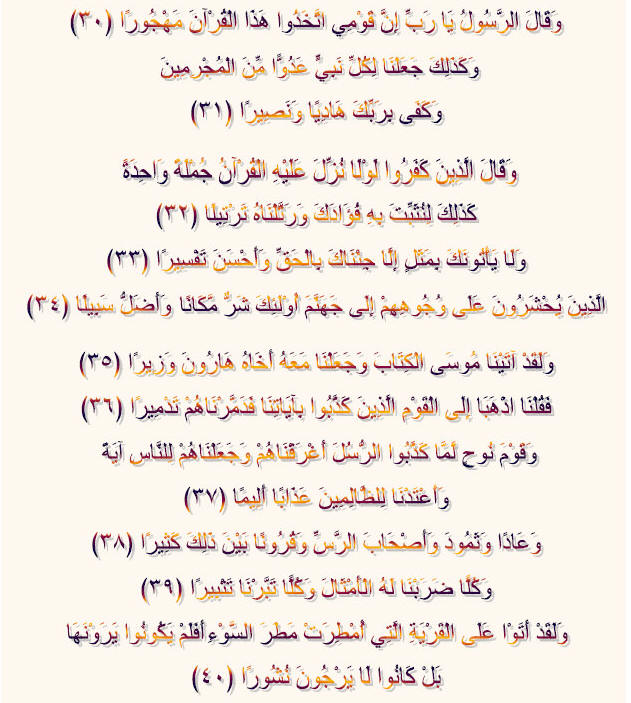 وَقَالَ الرَّسُولُ يَا رَبِّ إِنَّ قَوْمِي اتَّخَذُوا هَذَا الْقُرْآنَ مَهْجُورًا (٣٠)
وَكَذَلِكَ جَعَلْنَا لِكُلِّ نَبِيٍّ عَدُوًّا مِّنَ الْمُجْرِمِينَ
وَكَفَى بِرَبِّكَ هَادِيًا وَنَصِيرًا (٣١)
وَقَالَ الَّذِينَ كَفَرُوا لَوْلَا نُزِّلَ عَلَيْهِ الْقُرْآنُ جُمْلَةً وَاحِدَةً
كَذَلِكَ لِنُثَبِّتَ بِهِ فُؤَادَكَ وَرَتَّلْنَاهُ تَرْتِيلًا (٣٢)
وَلَا يَأْتُونَكَ بِمَثَلٍ إِلَّا جِئْنَاكَ بِالْحَقِّ وَأَحْسَنَ تَفْسِيرًا (٣٣)
الَّذِينَ يُحْشَرُونَ عَلَى وُجُوهِهِمْ إِلَى جَهَنَّمَ أُوْلَئِكَ شَرٌّ مَّكَانًا وَأَضَلُّ سَبِيلًا (٣٤)
وَلَقَدْ آتَيْنَا مُوسَى الْكِتَابَ وَجَعَلْنَا مَعَهُ أَخَاهُ هَارُونَ وَزِيرًا (٣٥)
فَقُلْنَا اذْهَبَا إِلَى الْقَوْمِ الَّذِينَ كَذَّبُوا بِآيَاتِنَا فَدَمَّرْنَاهُمْ تَدْمِيرًا (٣٦)
وَقَوْمَ نُوحٍ لَّمَّا كَذَّبُوا الرُّسُلَ أَغْرَقْنَاهُمْ وَجَعَلْنَاهُمْ لِلنَّاسِ آيَةً
وَأَعْتَدْنَا لِلظَّالِمِينَ عَذَابًا أَلِيمًا (٣٧)
وَعَادًا وَثَمُودَ وَأَصْحَابَ الرَّسِّ وَقُرُونًا بَيْنَ ذَلِكَ كَثِيرًا (٣٨)
وَكُلًّا ضَرَبْنَا لَهُ الْأَمْثَالَ وَكُلًّا تَبَّرْنَا تَتْبِيرًا (٣٩)
وَلَقَدْ أَتَوْا عَلَى الْقَرْيَةِ الَّتِي أُمْطِرَتْ مَطَرَ السَّوْءِ أَفَلَمْ يَكُونُوا يَرَوْنَهَا
بَلْ كَانُوا لَا يَرْجُونَ نُشُورًا (٤٠)